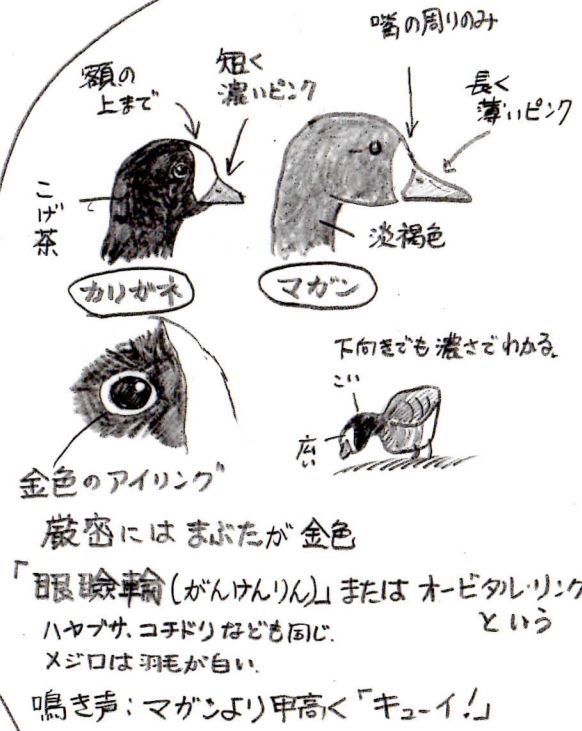 額の
上まで
短く
濃いピンク
嘴の周りのみ
長く
薄いピンク
こげ茶
淡褐色
カリガネ
マガン
下向きでも濃さでわかる。
こい
広い
金色のアイリング
厳密にはまぶたが金色
「眼瞼輪(がんけんりん)」またはオービタル・リング
という
ハヤブサ、コチドリなども同じ.
メジロは羽毛が白い.
鳴き声:マガンより甲高く「キューイ!」